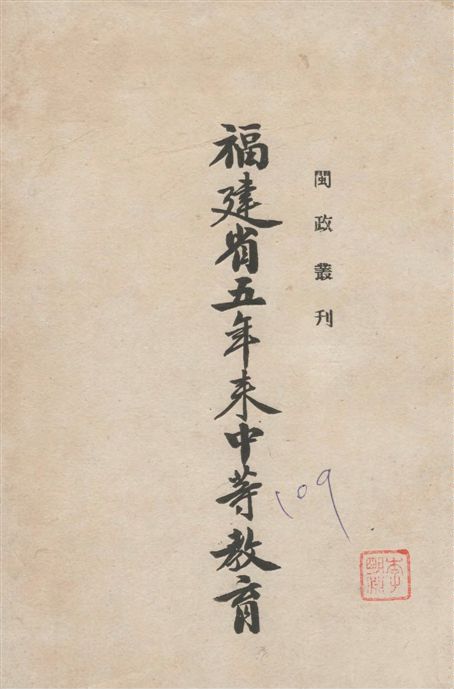 閩政叢刊
福建省五年來中等教育
109